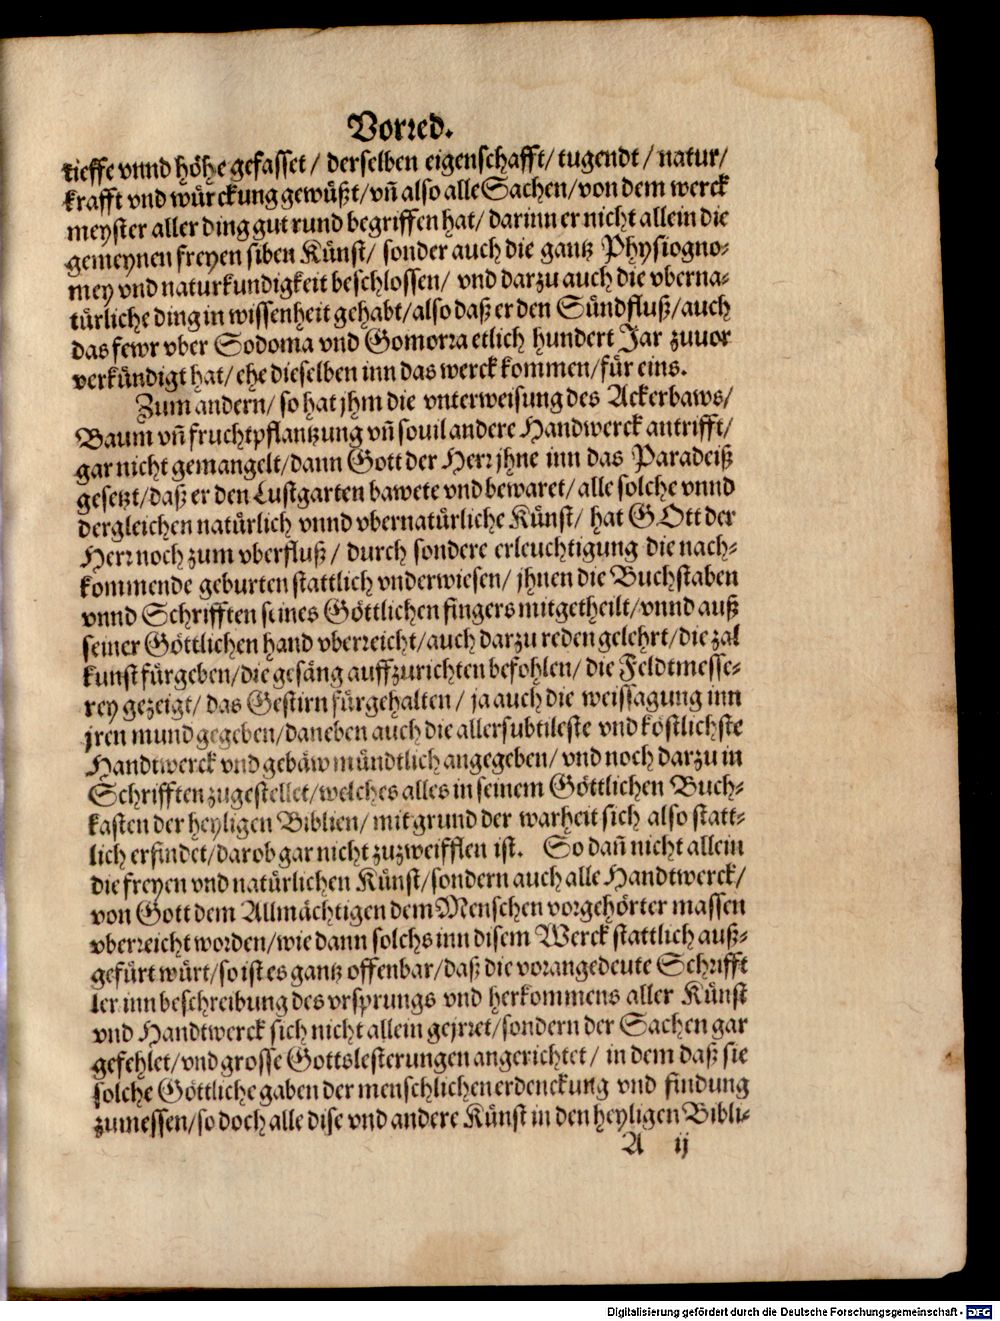 Vorred.
tieffe vnnd höhe gefasset / derselben eigenschafft / tugendt / natur /
krafft vnd würckung gewüßt / vñ also alle Sachen / von dem werck
meyster aller ding gut rund begriffen hat / darinn er nicht allein die
gemeynen freyen siben Künst / sonder auch die gantz Physiogno⸗
mey vnd naturkundigkeit beschlossen / vnd darzu auch die vberna⸗
türliche ding in wissenheit gehabt / also daß er den Sündfluß / auch
das fewr vber Sodoma vnd Gomorra etlich hundert Jar zuuor
verkündigt hat / ehe dieselben inn das werck kommen / für eins.
Zum andern / so hat jhm die vnterweisung des Ackerbaws /
Baum vñ fruchtpflantzung vñ souil andere Handwerck antrifft /
gar nicht gemangelt / dann Gott der Herr jhne inn das Paradeiß
gesetzt / daß er den Lustgarten bawete vnd bewaret / alle solche vnnd
dergleichen natürlich vnnd vbernatürliche Künst / hat GOtt der
Herr noch zum vberfluß / durch sondere erleuchtigung die nach⸗
kommende geburten stattlich vnderwiesen / jhnen die Buchstaben
vnnd Schrifften seines Göttlichen fingers mitgetheilt / vnnd auß
seiner Göttlichen hand vberreicht / auch darzu reden gelehrt / die zal
kunst fürgeben / die gesäng auffzurichten befohlen / die Feldtmesse⸗
rey gezeigt / das Gestirn fürgehalten / ja auch die weissagung inn
jren mund gegeben / daneben auch die allersubtileste vnd köstlichste
Handtwerck vnd gebäw mündtlich angegeben / vnd noch darzu in
Schrifften zugestellet / welches alles in seinem Göttlichen Buch⸗
kasten der heyligen Biblien / mit grund der warheit sich also statt⸗
lich erfindet / darob gar nicht zuzweifflen ist. So dañ nicht allein
die freyen vnd natürlichen Künst / sondern auch alle Handtwerck /
von Gott dem Allmächtigen dem Menschen vorgehörter massen
vberreicht worden / wie dann solchs inn disem Werck stattlich auß⸗
gefürt würt / so ist es gantz offenbar / daß die vorangedeute Schrifft
ler inn beschreibung des vrsprungs vnd herkommens aller Künst
vnd Handtwerck sich nicht allein gejrret / sondern der Sachen gar
gefehlet / vnd grosse Gottslesterungen angerichtet / in dem daß sie
solche Göttliche gaben der menschlichen erdenckung vnd findung
zumessen / so doch alle dise vnd andere Künst in den heyligen Bibli⸗
A ij
Digitalisierung gefördert durch die Deutsche Forschungsgemeinschaft - DFG